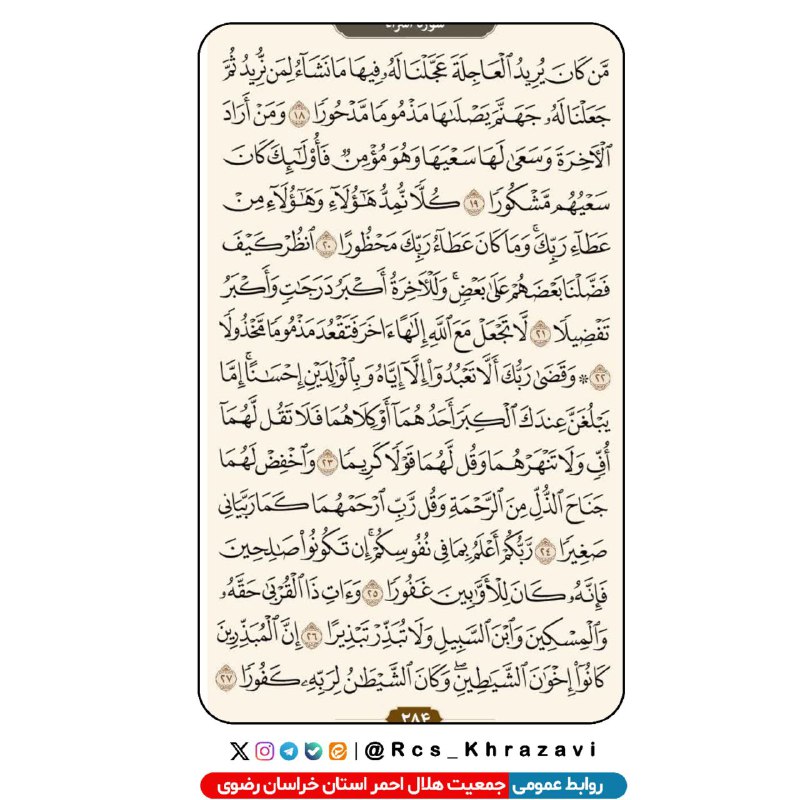 سورة الإسراء
مَّن كَانَ يُرِيدُ ٱلْعَاجِلَةَ عَجَّلْنَا لَهُۥ فِيهَا مَا نَشَآءُ لِمَن نُّرِيدُ ثُمَّ
جَعَلْنَا لَهُۥ جَهَنَّمَ يَصْلَىٰهَا مَذْمُومًا مَّدْحُورًا ١٨ وَمَنْ أَرَادَ
ٱلْءَاخِرَةَ وَسَعَىٰ لَهَا سَعْيَهَا وَهُوَ مُؤْمِنٌ فَأُو۟لَٰٓئِكَ كَانَ
سَعْيُهُم مَّشْكُورًا ١٩ كُلًّا نُّمِدُّ هَٰٓؤُلَآءِ وَهَٰٓؤُلَآءِ مِنْ
عَطَآءِ رَبِّكَ ۚ وَمَا كَانَ عَطَآءُ رَبِّكَ مَحْظُورًا ٢٠ ٱنظُرْ كَيْفَ
فَضَّلْنَا بَعْضَهُمْ عَلَىٰ بَعْضٍ ۚ وَلَلْءَاخِرَةُ أَكْبَرُ دَرَجَٰتٍ وَأَكْبَرُ
تَفْضِيلًا ٢١ لَّا تَجْعَلْ مَعَ ٱللَّهِ إِلَٰهًا ءَاخَرَ فَتَقْعُدَ مَذْمُومًا مَّخْذُولًا
٢٢ ۞ وَقَضَىٰ رَبُّكَ أَلَّا تَعْبُدُوٓا۟ إِلَّآ إِيَّاهُ وَبِٱلْوَٰلِدَيْنِ إِحْسَٰنًا ۚ إِمَّا
يَبْلُغَنَّ عِندَكَ ٱلْكِبَرَ أَحَدُهُمَآ أَوْ كِلَاهُمَا فَلَا تَقُل لَّهُمَآ
أُفٍّ وَلَا تَنْهَرْهُمَا وَقُل لَّهُمَا قَوْلًا كَرِيمًا ٢٣ وَٱخْفِضْ لَهُمَا
جَنَاحَ ٱلذُّلِّ مِنَ ٱلرَّحْمَةِ وَقُل رَّبِّ ٱرْحَمْهُمَا كَمَا رَبَّيَانِى
صَغِيرًا ٢٤ رَّبُّكُمْ أَعْلَمُ بِمَا فِى نُفُوسِكُمْ ۚ إِن تَكُونُوا۟ صَٰلِحِينَ
فَإِنَّهُۥ كَانَ لِلْأَوَّٰبِينَ غَفُورًا ٢٥ وَءَاتِ ذَا ٱلْقُرْبَىٰ حَقَّهُۥ
وَٱلْمِسْكِينَ وَٱبْنَ ٱلسَّبِيلِ وَلَا تُبَذِّرْ تَبْذِيرًا ٢٦ إِنَّ ٱلْمُبَذِّرِينَ
كَانُوٓا۟ إِخْوَٰنَ ٱلشَّيَٰطِينِ ۖ وَكَانَ ٱلشَّيْطَٰنُ لِرَبِّهِۦ كَفُورًا ٢٧
۲۸۴
| @Rcs_Khrazavi
روابط عمومی جمعیت هلال احمر استان خراسان رضوی